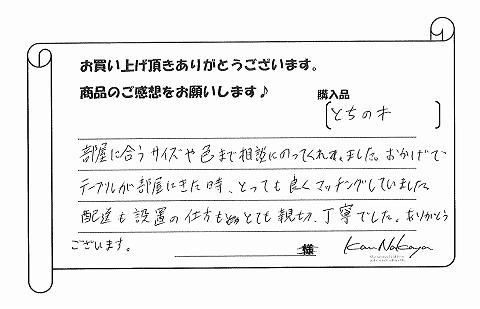 お買い上げ頂きありがとうございます。
商品のご感想をお願いします♪
購入品
[とちの木]
部屋に合うサイズや色まで相談にのってくれました。おかげで
テーブルが部屋にきた時、とっても良くマッチングしていました
配送も設置の仕方もとても親切、丁寧でした。ありがとう
ございます。
様
Kan Nakaya